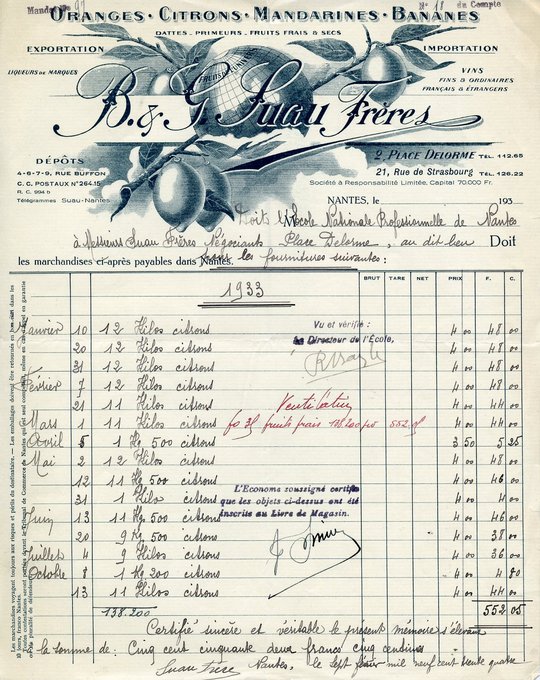 Mandat No 97
No 18 du Compte
ORANGES · CITRONS · MANDARINES · BANANES
DATTES · PRIMEURS · FRUITS FRAIS & SECS
EXPORTATION
IMPORTATION
LIQUEURS DE MARQUES
VINS
FINS & ORDINAIRES
FRANÇAIS & ÉTRANGERS
B. & G. Suau Frères
DÉPÔTS
4-6-7-9, RUE BUFFON
C. C. POSTAUX N° 264.15
R. C. 994 B
Télégrammes Suau-Nantes
2, PLACE DELORME TÉL. 112.65
21, Rue de Strasbourg TÉL. 126.22
Société à Responsabilité Limitée, Capital 70.000 Fr.
NANTES, le 193
Doit l'Ecole Nationale Professionnelle de Nantes
à Messieurs Suau Frères Négociants Place Delorme, au dit lieu Doit
les marchandises ci-après payables dans Nantes.
pour les fournitures suivantes :
BRUT TARE NET PRIX F. C.
1933
Janvier 10 12 Kilos citrons 4 00 48 00
20 12 Kilos citrons 4 00 48 00
31 12 Kilos citrons 4 00 48 00
Février 7 12 Kilos citrons 4 00 48 00
21 11 Kilos citrons 4 00 44 00
Mars 1 11 Kilos citrons 4 00 44 00
Avril 5 1 Kg 500 citrons 3 50 5 25
Mai 2 12 Kilos citrons 4 00 48 00
12 11 Kg 500 citrons 4 00 46 00
31 1 Kilo citrons 4 00 4 00
Juin 13 11 Kg 500 citrons 4 00 46 00
20 9 Kg 500 citrons 4 00 38 00
Juillet 4 9 Kilos citrons 4 00 36 00
Octobre 8 1 Kg 200 citrons 4 00 4 80
13 11 Kilos citrons 4 00 44 00
138.200
552 05
Vu et vérifié :
Le Directeur de l'École,
Ventilation
fruits frais 552
L'Econome soussigné certifie
que les objets ci-dessus ont été
inscrits au Livre de Magasin.
Certifié sincère et véritable le présent mémoire s'élevant
à la somme de : Cinq cent cinquante deux francs cinq centimes
Nantes, le sept mil neuf cent trente quatre
Suau Frère
Les marchandises voyagent toujours aux risques et périls du destinataire. — Les emballages doivent être retournés en bon état dans les
10 jours, franco Nantes.